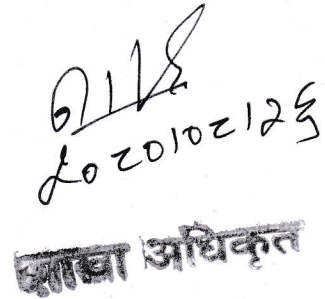 २०८०।०८।२६
शाखा अधिकृत